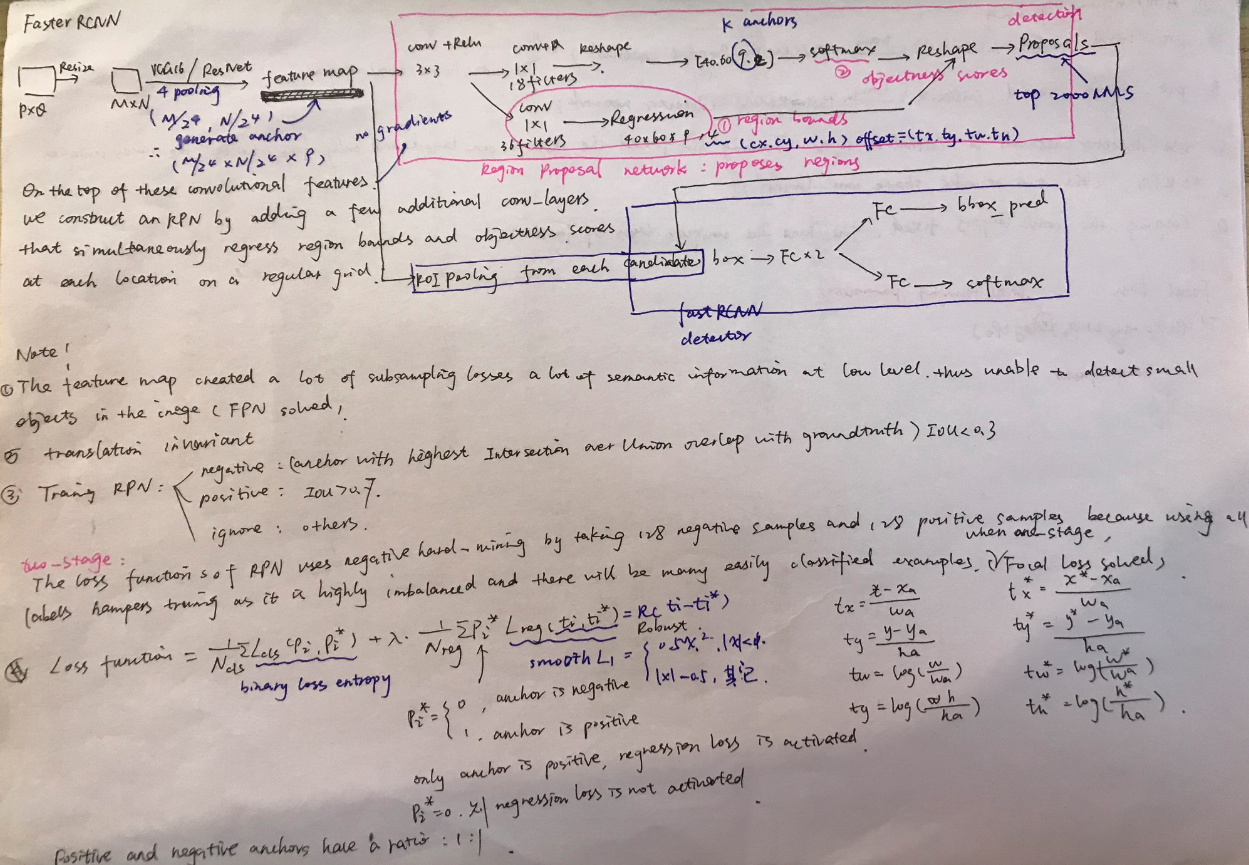 Faster RCNN
PxQ
Resize
MxN
VGG16 / ResNet
4 pooling
(M/2^4, N/2^4)
generate anchor
∴ (M/2^4 x N/2^4 x 9)
feature map
no gradients
conv + Relu
3x3
1x1
18 filters
Reshape
K anchors
[40.60 9.2]
softmax
② objectness scores
Reshape
detection
Proposals
top 2000 NMS
conv
1x1
36 filters
Regression
40x60x9,4
① region bounds
(cx.cy,w.h) offset=(tx.ty.tw.th)
Region Proposal network : proposes regions
On the top of these convolutional features.
we construct an RPN by adding a few additional conv-layers
that simultaneously regress region bounds and objectness scores
at each location on a regular grid.
ROI pooling from each candidate box
FC x 2
FC
bbox_pred
FC
softmax
fast RCNN
detector
Note!
① The feature map created a lot of subsampling losses a lot of semantic information at low level. thus unable to detect small
objects in the image (FPN solved)
translation invariant
③ Traing RPN:
negative : (anchor with highest Intersection over Union overlap with groundtruth) IoU<0.3
positive : IoU>0.7.
ignore : others.
two-stage:
The loss functions of RPN uses negative hard-mining by taking 128 negative samples and 128 positive samples because using all
labels hampers traing as it is highly imbalanced and there will be many easily classified examples.
when one-stage,
Focal Loss solved,
④ Loss function = 1/Ncls Σ Lcls (Pi, Pi*) + λ · 1/Nreg Σ Pi* Lreg(ti, ti*) = R(ti-ti*)
binary loss entropy
Robust
smooth L1 = { 0.5x², |x|<1.
|x|-0.5, 其它.
Pi* = { 0, anchor is negative
1. anchor is positive
only anchor is positive, regression loss is activated.
Pi*=0. regression loss is not activated.
tx = x-xa / wa
ty = y-ya / ha
tw = log(w/wa)
ty = log(h/ha)
tx* = x*-xa / wa
ty* = y*-ya / ha
tw* = log(w*/wa)
th* = log(h*/ha).
Positive and negative anchors have a ratio : 1:1.